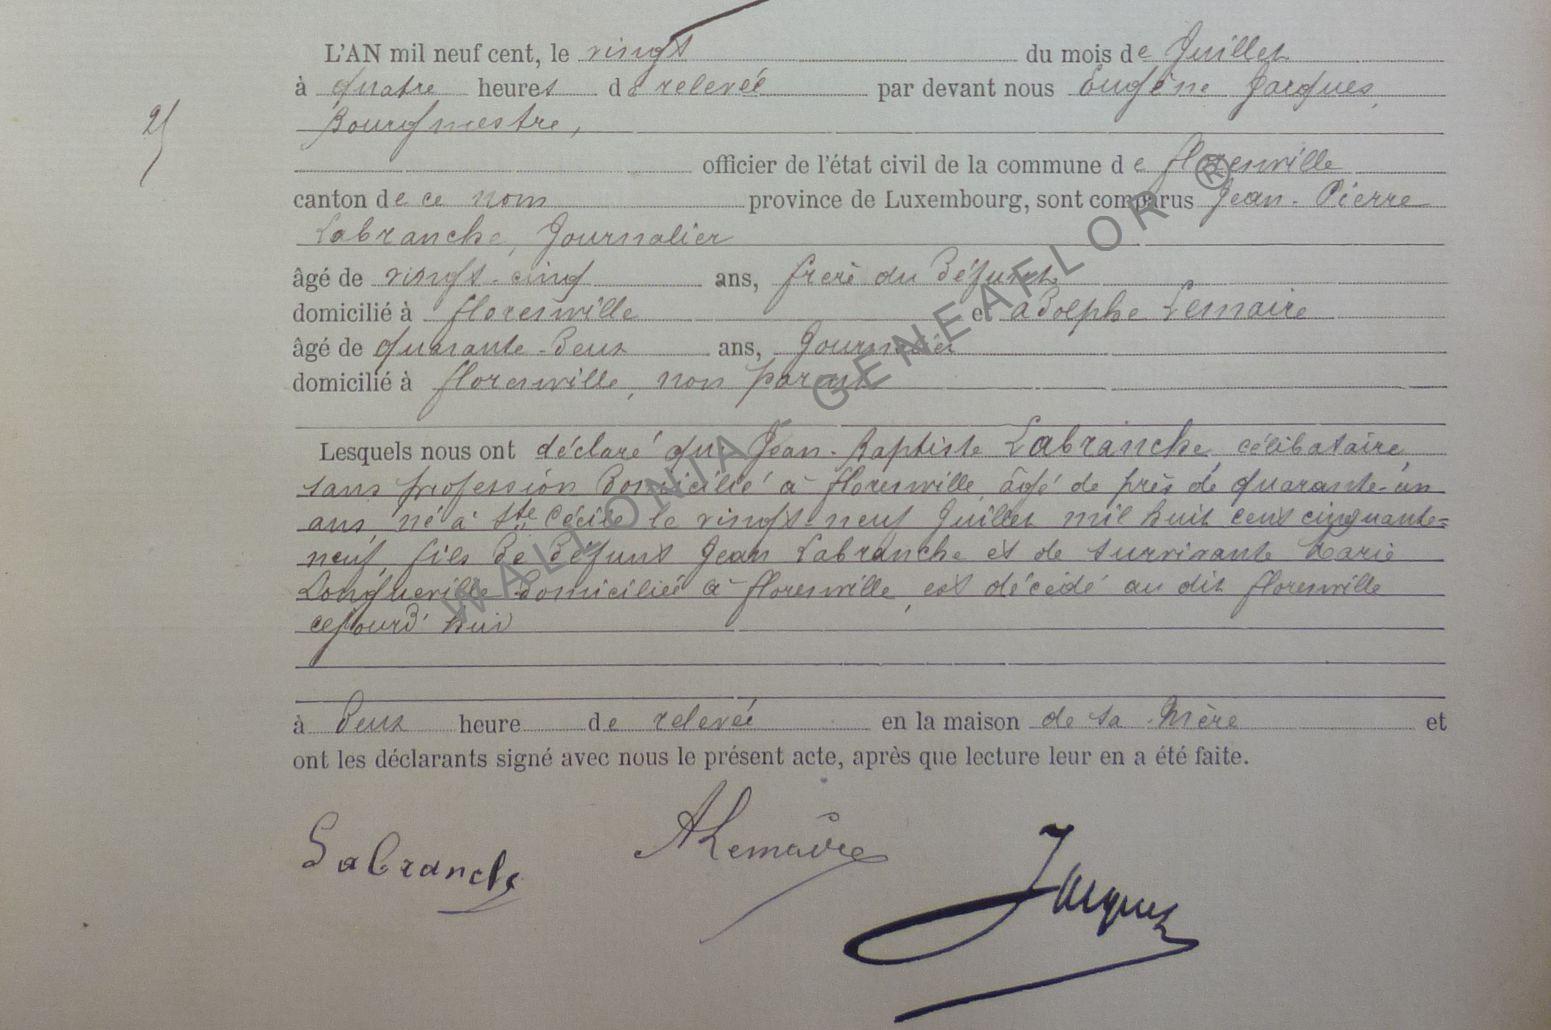 L'AN mil neuf cent, le vingt du mois de Juillet
à quatre heures de relevée par devant nous Eugène Jacques,
Bourgmestre,
officier de l'état civil de la commune de florenville
canton de ce nom province de Luxembourg, sont comparus Jean-Pierre
Labranche, Journalier
âgé de vingt-cinq ans, frère du Défunt
domicilié à florenville et adolphe Lemaire
âgé de quarante-Deux ans, Journalier
domicilié à florenville, non parent
Lesquels nous ont déclaré que Jean-Baptiste Labranche, célibataire,
sans profession Domicilié à florenville, âgé de près de quarante-un
ans, né à Ste Cécile le vingt-neuf Juillet mil huit cent cinquante=
neuf, fils de Défunt Jean Labranche et de survivante Marie
Longueville Domiciliée à florenville, est décédé au dit florenville
cejourd'hui
à Deux heure de relevée en la maison de sa Mère et
ont les déclarants signé avec nous le présent acte, après que lecture leur en a été faite.
Labranche ALemaire Jacques
WALLONIA GENEAFLOR ®